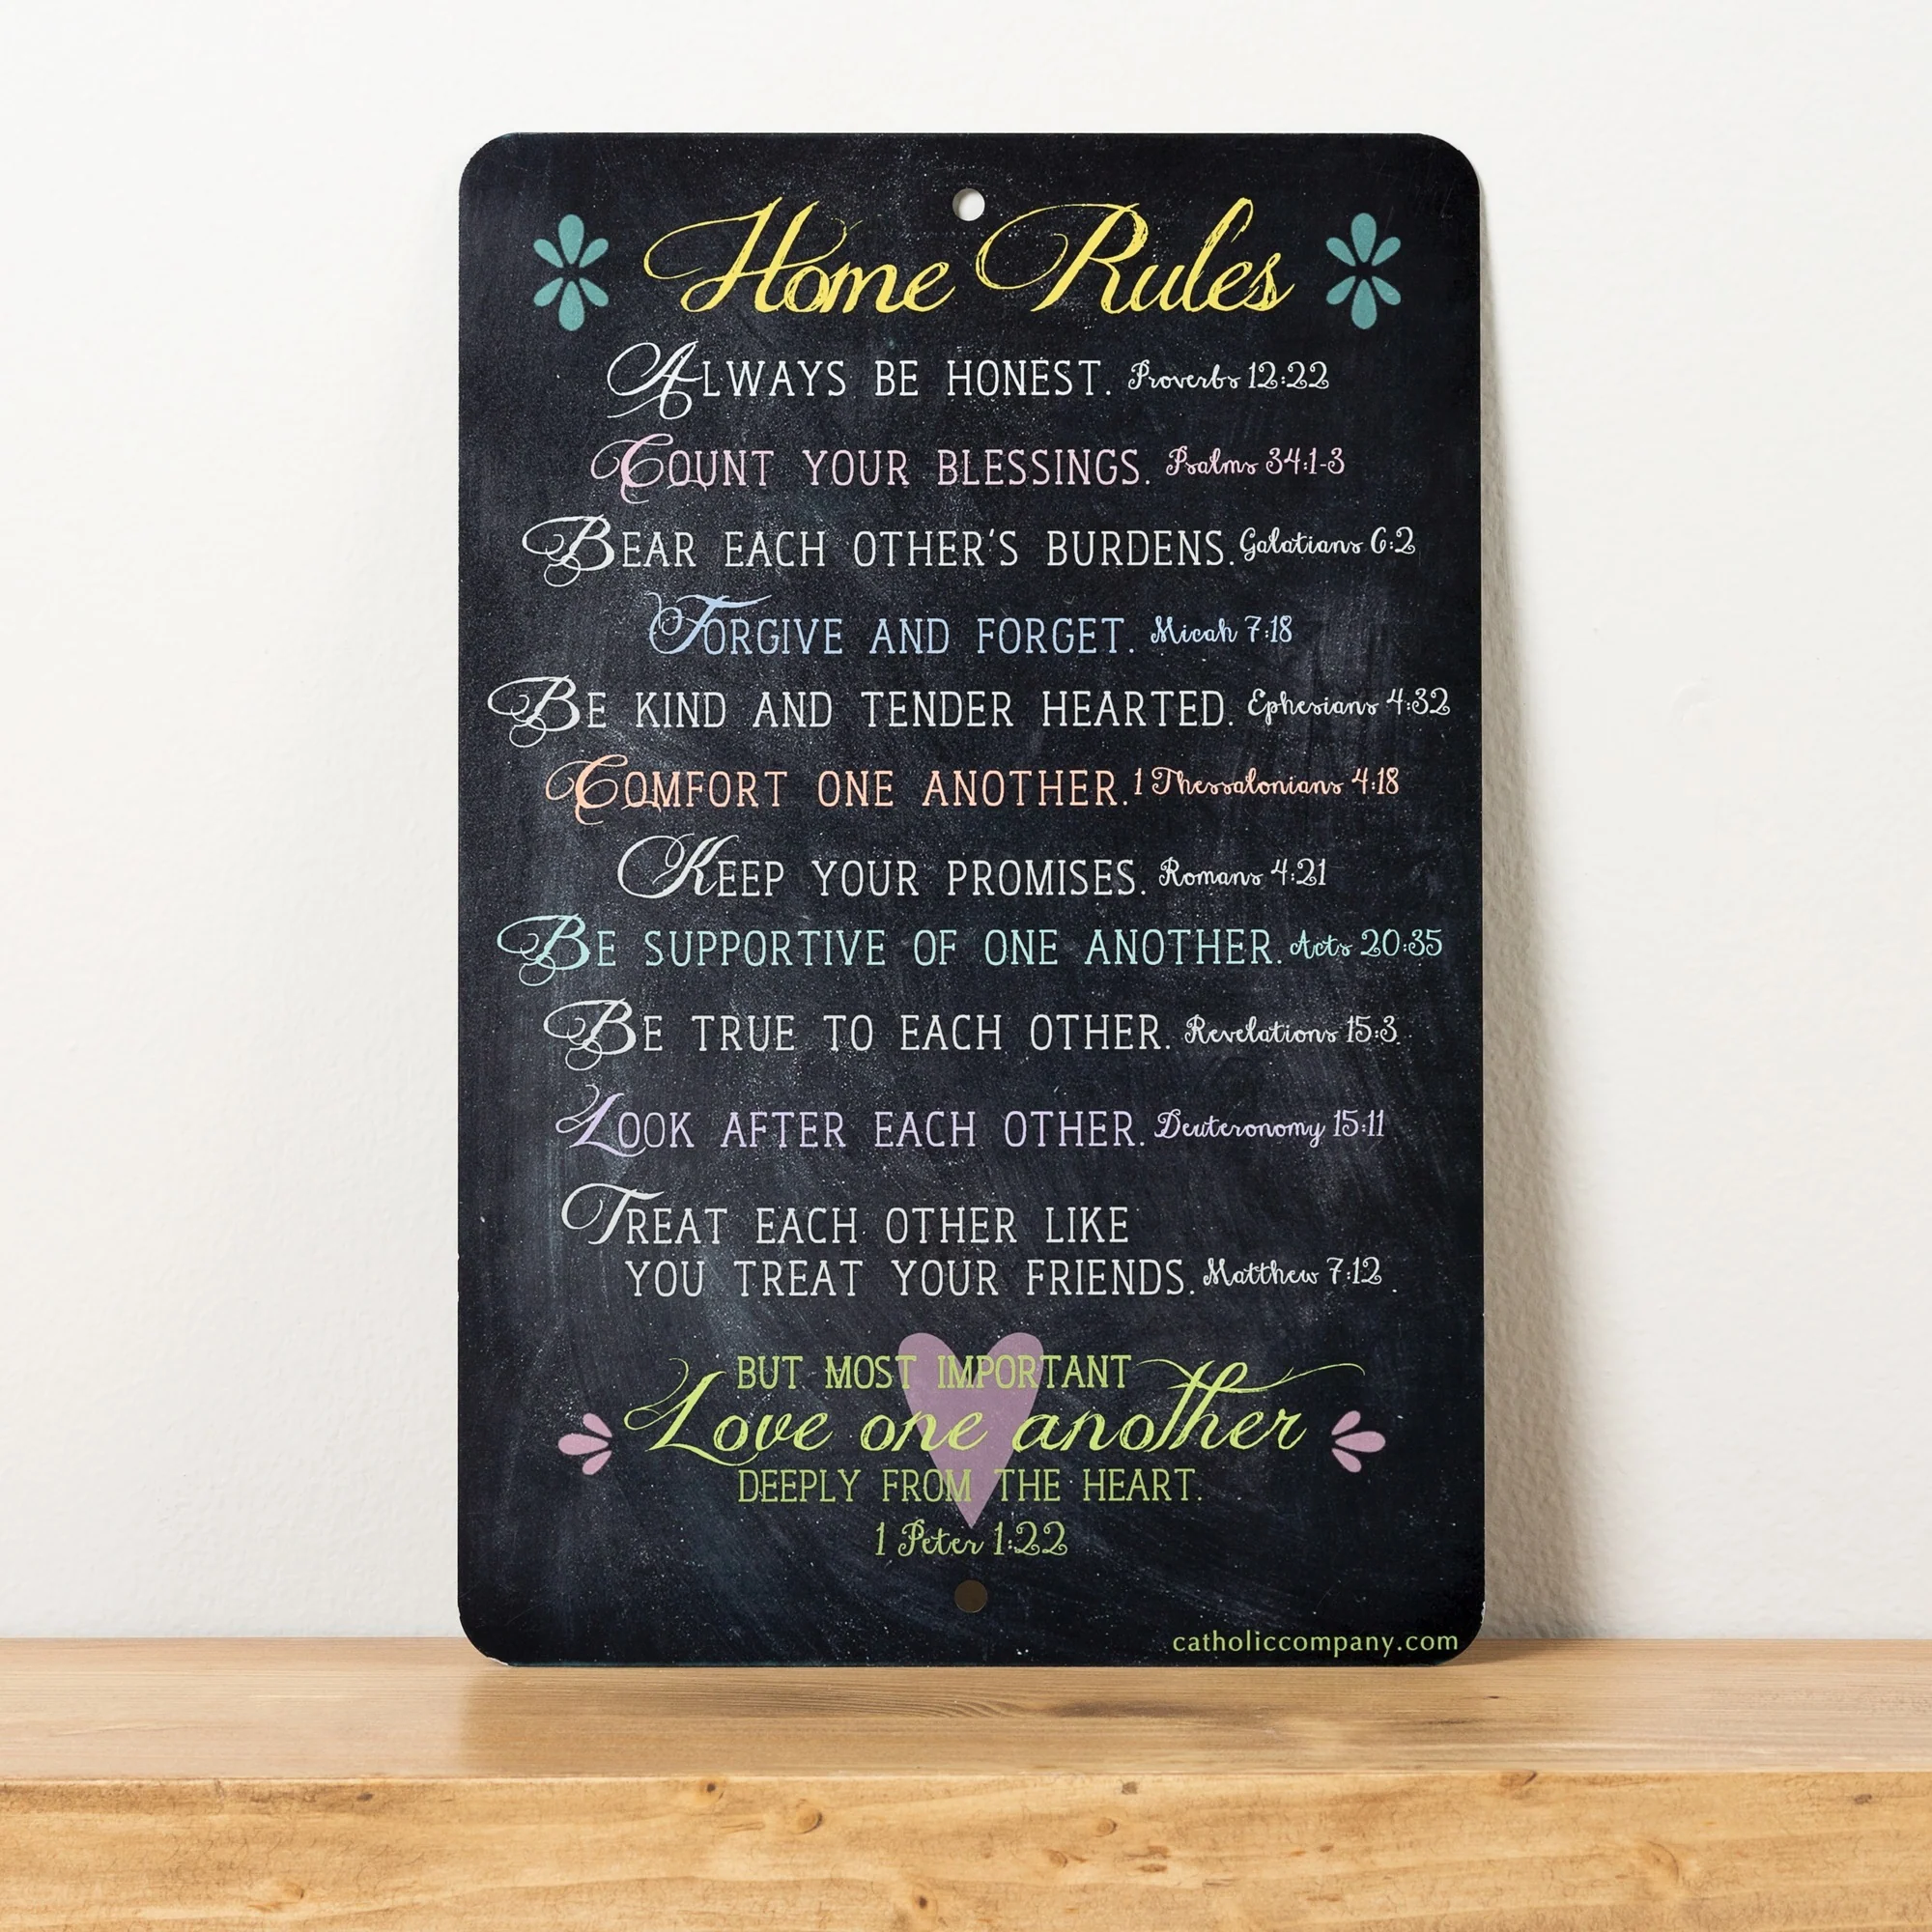 Home Rules
ALWAYS BE HONEST. Proverbs 12:22
COUNT YOUR BLESSINGS. Psalms 34:1-3
BEAR EACH OTHER'S BURDENS. Galatians 6:2
FORGIVE AND FORGET. Micah 7:18
BE KIND AND TENDER HEARTED. Ephesians 4:32
COMFORT ONE ANOTHER. 1 Thessalonians 4:18
KEEP YOUR PROMISES. Romans 4:21
BE SUPPORTIVE OF ONE ANOTHER. Acts 20:35
BE TRUE TO EACH OTHER. Revelations 15:3
LOOK AFTER EACH OTHER. Deuteronomy 15:11
TREAT EACH OTHER LIKE
YOU TREAT YOUR FRIENDS. Matthew 7:12
BUT MOST IMPORTANT
Love one another
DEEPLY FROM THE HEART.
1 Peter 1:22
catholiccompany.com